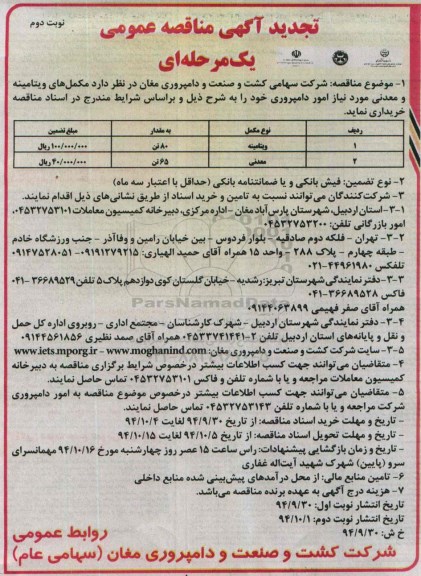 نوبت دوم
تجدید آگهی مناقصه عمومی
یک‌مرحله‌ای
۱- موضوع مناقصه: شرکت سهامی کشت و صنعت و دامپروری مغان در نظر دارد مکمل‌های ویتامینه
و معدنی مورد نیاز امور دامپروری خود را به شرح ذیل و براساس شرایط مندرج در اسناد مناقصه
خریداری نماید.
ردیف نوع مکمل به مقدار مبلغ تضمین
۱ ویتامینه ۸۰ تن ۱۰۰/۰۰۰/۰۰۰ ریال
۲ معدنی ۶۵ تن ۴۰/۰۰۰/۰۰۰ ریال
۲- نوع تضمین: فیش بانکی و یا ضمانتنامه بانکی (حداقل با اعتبار سه ماه)
۳- شرکت‌کنندگان می‌توانند نسبت به تامین و خرید اسناد از طریق نشانی‌های ذیل اقدام نمایند.
۳-۱- استان اردبیل، شهرستان پارس‌آباد مغان - اداره مرکزی، دبیرخانه کمیسیون معاملات ۰۴۵۳۲۷۵۳۱۰۱،
امور بازرگانی تلفن: ۰۴۵۳۲۷۵۳۲۰۰
۳-۲- تهران - فلکه دوم صادقیه - بلوار فردوس - بین خیابان رامین و وفاآذر - جنب ورزشگاه خادم
- طبقه چهارم - پلاک ۲۸۸ - واحد ۱۵ همراه آقای حمید الهیاری: ۰۹۱۹۱۲۷۹۲۱۵ - ۰۹۱۴۷۵۲۸۰۵۱
تلفکس ۴۴۹۶۱۹۸۰-۰۲۱
۳-۳- دفتر نمایندگی شهرستان تبریز: رشدیه - خیابان گلستان کوی دوازدهم پلاک ۵ تلفن ۳۶۶۸۹۵۲۹-۰۴۱
فاکس ۳۶۶۸۹۵۲۸-۰۴۱
همراه آقای صفر فهیمی ۰۹۱۴۴۰۶۳۸۹۹
۳-۴- دفتر نمایندگی شهرستان اردبیل - شهرک کارشناسان - مجتمع اداری - روبروی اداره کل حمل
و نقل و پایانه‌های استان اردبیل تلفن ۲-۰۴۵۳۳۷۴۱۴۴۱ همراه آقای صمد نظیری ۰۹۱۴۴۵۶۱۸۵۶
۳-۵- سایت شرکت کشت و صنعت و دامپروری مغان: www.iets.mporg.ir – www.moghanind.com
۴- متقاضیان می‌توانند جهت کسب اطلاعات بیشتر درخصوص شرایط برگزاری مناقصه به دبیرخانه
کمیسیون معاملات مراجعه و یا با شماره تلفن و فاکس ۰۴۵۳۲۷۵۳۱۰۱ تماس حاصل نمایند.
۵- متقاضیان می‌توانند جهت کسب اطلاعات بیشتر درخصوص موضوع مناقصه به امور دامپروری
شرکت مراجعه و یا با شماره تلفن ۰۴۵۳۲۷۵۳۱۴۳ تماس حاصل نمایند.
- تاریخ و مهلت خرید اسناد مناقصه: از تاریخ ۹۴/۹/۳۰ لغایت ۹۴/۱۰/۴
- تاریخ و مهلت تحویل اسناد مناقصه: از تاریخ ۹۴/۱۰/۵ لغایت ۹۴/۱۰/۱۵
- تاریخ و زمان بازگشایی پیشنهادات: راس ساعت ۱۵ عصر روز چهارشنبه مورخ ۹۴/۱۰/۱۶ مهمانسرای
سرو (پایین) شهرک شهید آیت‌اله غفاری
۶- تامین منابع مالی: از محل درآمدهای پیش‌بینی شده منابع داخلی
۷- هزینه درج آگهی به عهده برنده مناقصه می‌باشد.
تاریخ انتشار نوبت اول: ۹۴/۹/۳۰
تاریخ انتشار نوبت دوم: ۹۴/۱۰/۱
خ ش: ۹۴/۹/۳۰
روابط عمومی
شرکت کشت و صنعت و دامپروری مغان (سهامی عام)
ParsNamadData